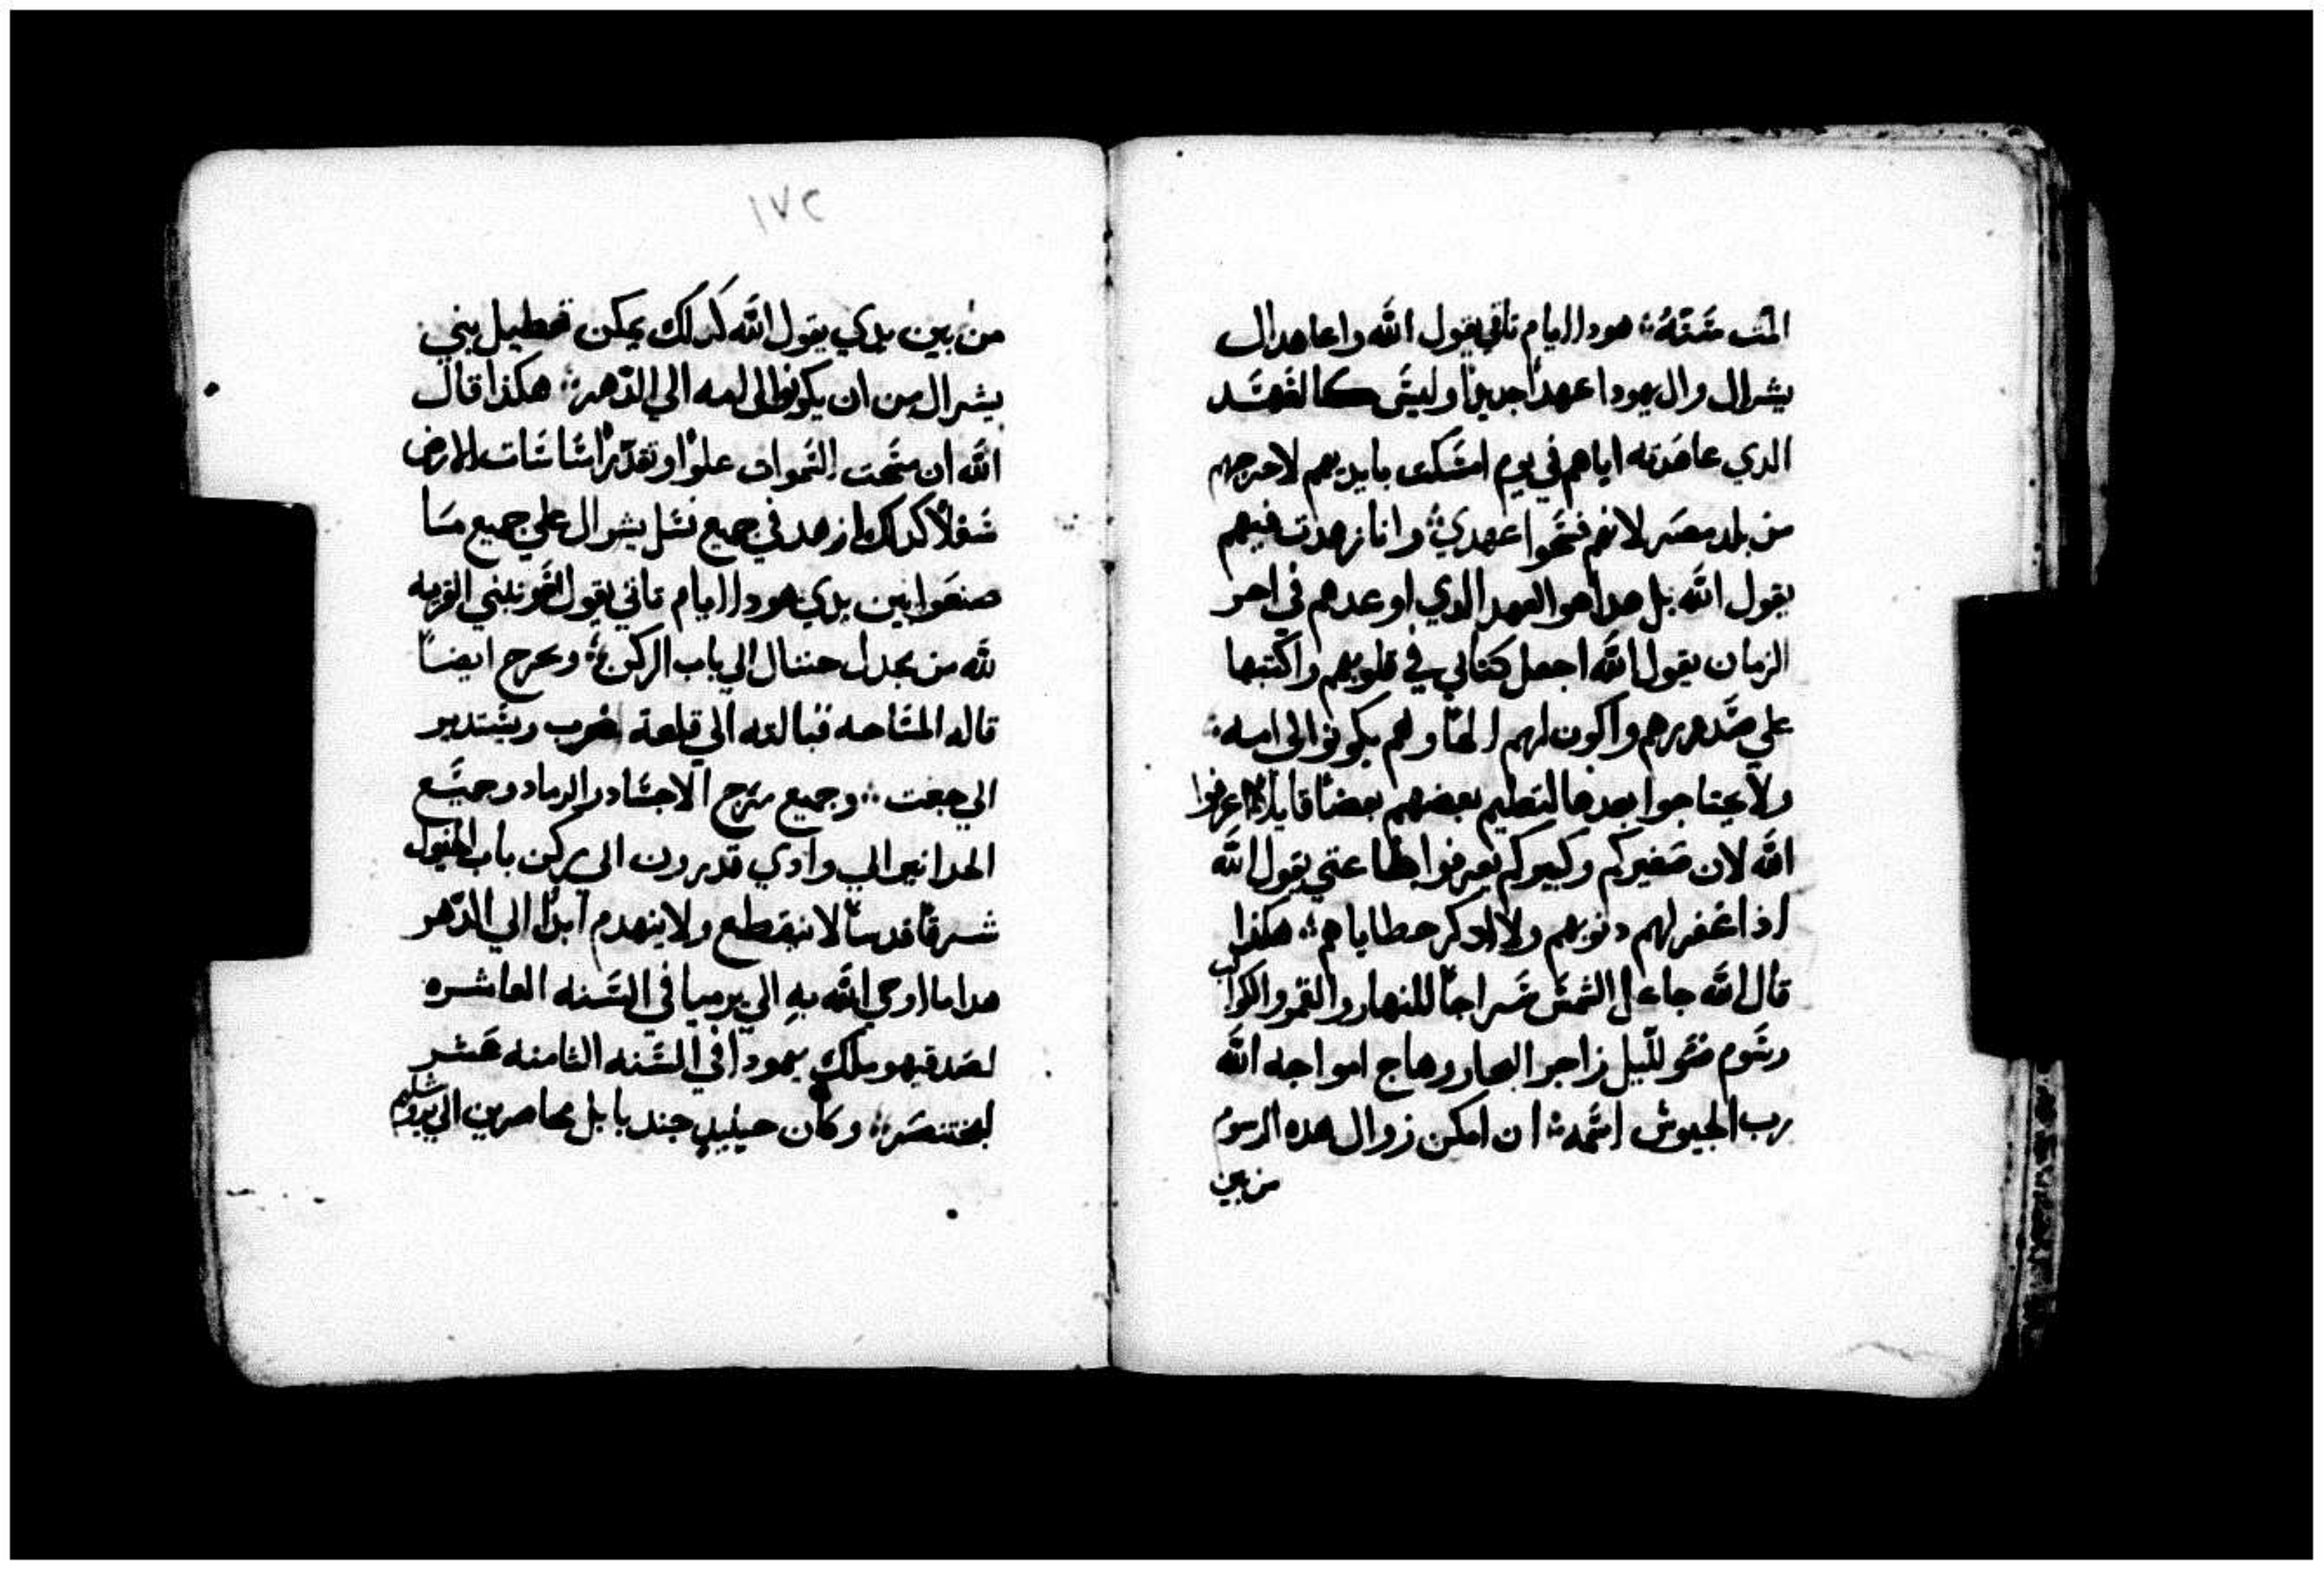 المت سَنَتَهُ؞ هودا ايام تاتي يقول الله واعاهد ال
يشرال وال يهودا عهداً جديداً وليسَ كالعَهَد
الدي عاهَدته اياهم في يوم امسَكت بايديهم لاخرجهم
من بلد مصَر لانهم فسَخوا عهدي؞ وانا زهدت فيهم
يقول الله بل هدا هو العهد الدي اوعدهم في اخر
الزمان يقول الله اجعل كتابي في قلوبهم واكتبها
علي صَدورهم واكون لهم الهاً وهم يكونوا لي امه؞
ولا يحتاجوا بعدها لتعليم بعضهم بعضاً قايلا اعرفوا
الله لان صَغيركم وكبيركم يعرفوا طاعتي يقول الله
اذ اغفر لهم دنوبهم ولا ادكر خطاياهم؞ هكذا
قال الله جاعل الشمسَ سَراجاً للنهار والقمر والكواكب
رسَوم ضَو لليل زاجر البحار وهاج امواجه الله
رب الجيوش اسَمه؞ ان امكن زوال هده الرسوم
من بين
١٧٢
من بين يدي يقول الله كدلك يمكن تعطيل بني
يشرال من ان يكونوا لي امه الي الدَهر؞ هكذا قال
الله ان سَمحت السَموات علواً وتقدّر اسَاسَات الارض
سَفلاً كدلك ازهد في جميع نسَل يشرال علي جميع مسَا
صنعَوا بين يدي هودا ايام تاتي يقول الله وتبني القريه
لله من مجدل حننال الي باب الركن؞ ويخرج ايضاً
قاله المسَاحه قبالته الي قلعة غرب ويسَتدير
الي جعت؞ وجميع مرج الاجسَاد والرماد وجميَع
الي وادي قدرون الي ركن باب الخيول
شرقاً قدساً لا ينقطع ولا ينهدم ابداً الي الدَهر
هدا ما اوحي الله بهِ الي يرميا في السَنه العاشره
لصَدقيهو ملك يهودا في السَنه الثامنه عَشر
لبختنصَر؞ وكان حينيدٍ جند بابل محاصرين الي يروشليم